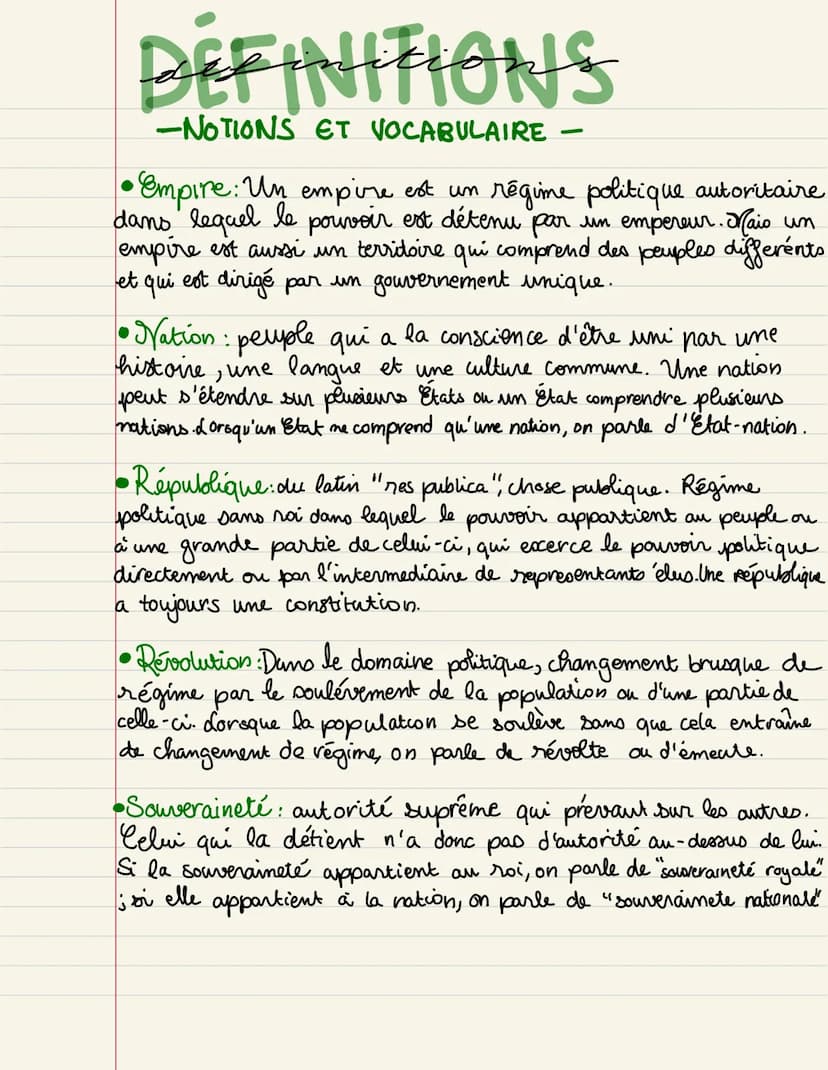 DÉFINITIONS
définitions
—NOTIONS ET VOCABULAIRE —
• Empire: Un empire est un régime politique autoritaire
dans lequel le pouvoir est détenu par un empereur. Mais un
empire est aussi un terridoire qui comprend des peuples differénts
et qui est dirigé par un gouvernement unique.
• Nation : peuple qui a la conscience d'être uni par une
histoire, une langue et une culture commune. Une nation
peut s'étendre sur plusieurs États ou un État comprendre plusieurs
nations. Lorsqu'un État ne comprend qu'une nation, on parle d'État-nation.
• République: du latin "res publica", chose publique. Régime
politique sans roi dans lequel le pouvoir appartient au peuple ou
à une grande partie de celui-ci, qui excerce le pouvoir politique
directement ou par l'intermediaire de representants élus. Une république
a toujours une constitution.
• Révolution: Dans le domaine politique, changement brusque de
régime par le soulévement de la population ou d'une partie de
celle-ci. Lorsque la population se soulève sans que cela entraîne
de changement de régime, on parle de révolte ou d'émeute.
• Souveraineté : autorité suprême qui prévaut sur les autres.
Celui qui la détient n'a donc pas d'autorité au-dessus de lui.
Si la souveraineté appartient au roi, on parle de "souveraineté royale"
; si elle appartient à la nation, on parle de "souveraineté nationale"